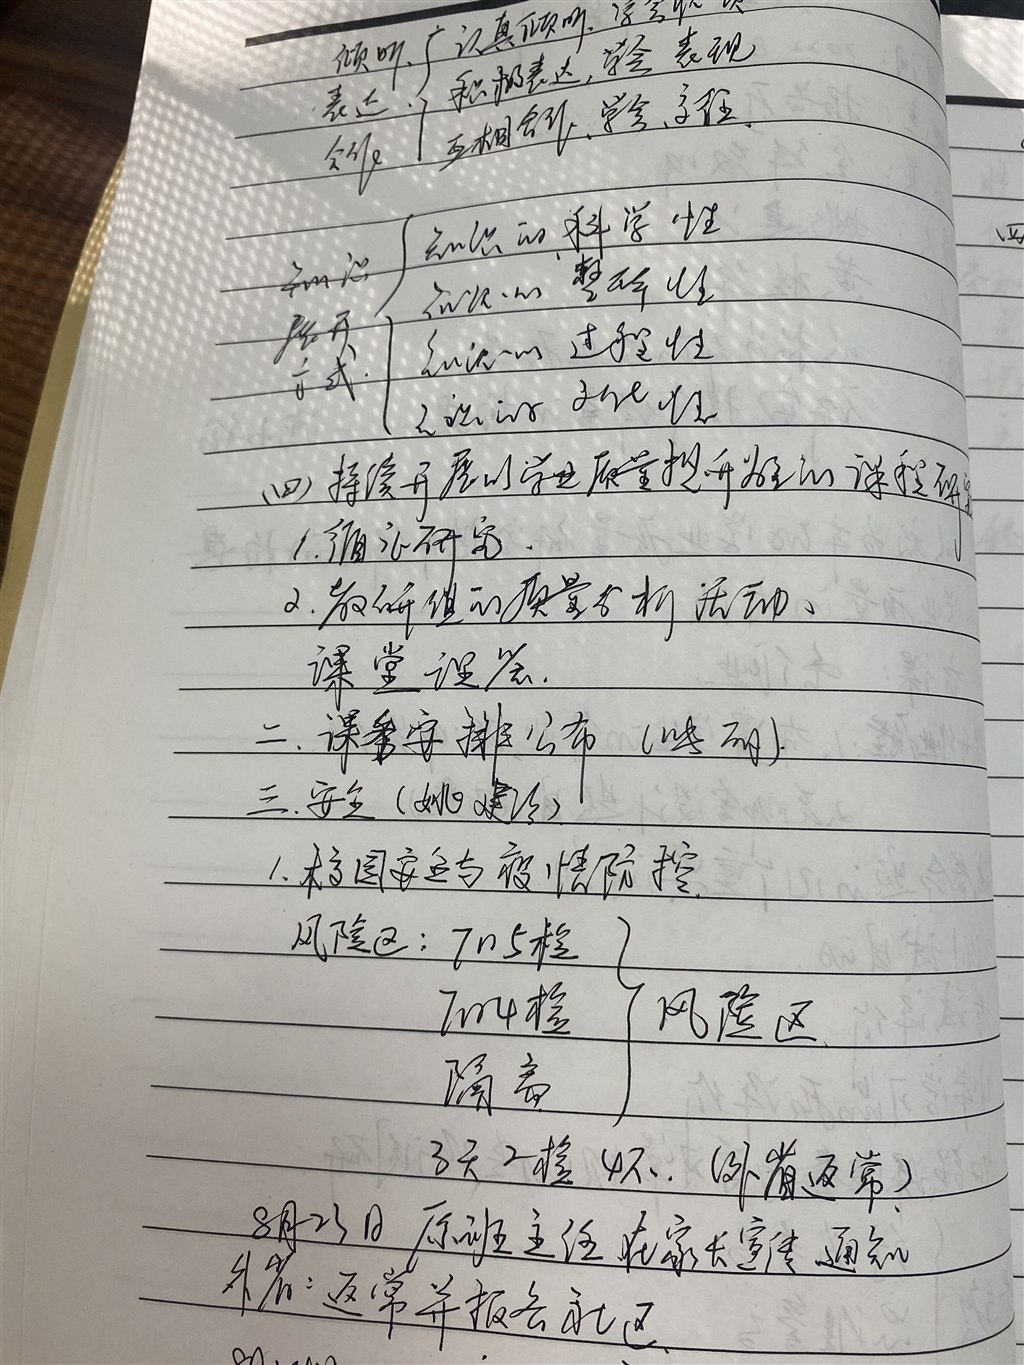 倾听 认真倾听、学会
表达 积极表达，学会表现
合作 互相合作、学会
知识展开方式
知识的科学性
知识的整体性
知识的过程性
知识的文化性
(四) 持续开展以学业质量提升为主的课程研究
1. 循证研究.
2. 教研组的质量分析活动、
课堂
二. 课务安排公布
三. 安全 (姚建
1. 校园安全与疫情防控
风险区: 7天5检
7天4检 风险区
隔离
3天2检 (外省返常)
8月23日 原班主任在家长宣传通知
外省: 返常并报备社区